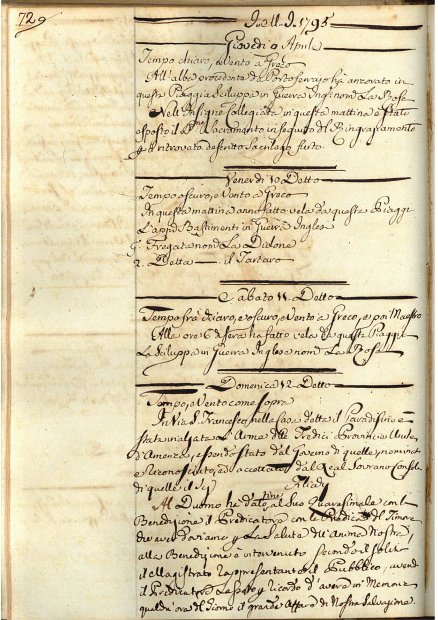 729
Giovedì 9 Aprile
Tempo chiaro, e Vento a Greco
All'albe procedente da Portoferrajo ha ancorato in
questa Piaggia Siluppa in Guerra Ingl: nom: La Rose
Nell'Insigne Collegiata in questa mattina è stato
esposto il Sacramento in seguito del Ringraziamento
ritrovato descritto Sacrilego furto.
Venerdì 10 Detto
Tempo oscuro, e Vento a Greco
In questa mattina anno fatto vela da questa Piaggi
L'appid: Bastimenti in Guerra Inglese
Fregata nom: La Didone
2. Detta — il Tartaro
Sabato 11 Detto
Tempo fra chiaro, e oscuro, e Vento a Greco, e poi Maestro
Alle ore 6 di sera ha fatto vela da questa Piaggi
La Siluppa in Guerra Inglese nom: La Rose
Domenica 12 Detto
Tempo, e Vento come sopra
In Via S. Francesco, nella Casa detta il Paradisino è
stata inalzata L'Arme delle Tredici Provincie Unite
d'America, essendo stato dal Governo di quelle, nominat
e Riconosciuto, ed accettato dal Real Sovrano Console
di quelle il Sig:
Al Duomo ha dato fine al suo Quaresimale con
Benedizione il Predicatore con le Prediche del Timore
La Salute dell'Anima Nostra,
alla Benedizione è intervenuto secondo il solito
il Magistrato Rapresentante il Pubblico, avend
il Predicatore Lasciato Ricordo d'avere in Memoria
qualch'ora del Giorno il grande Affare di Nostra Salvazione.